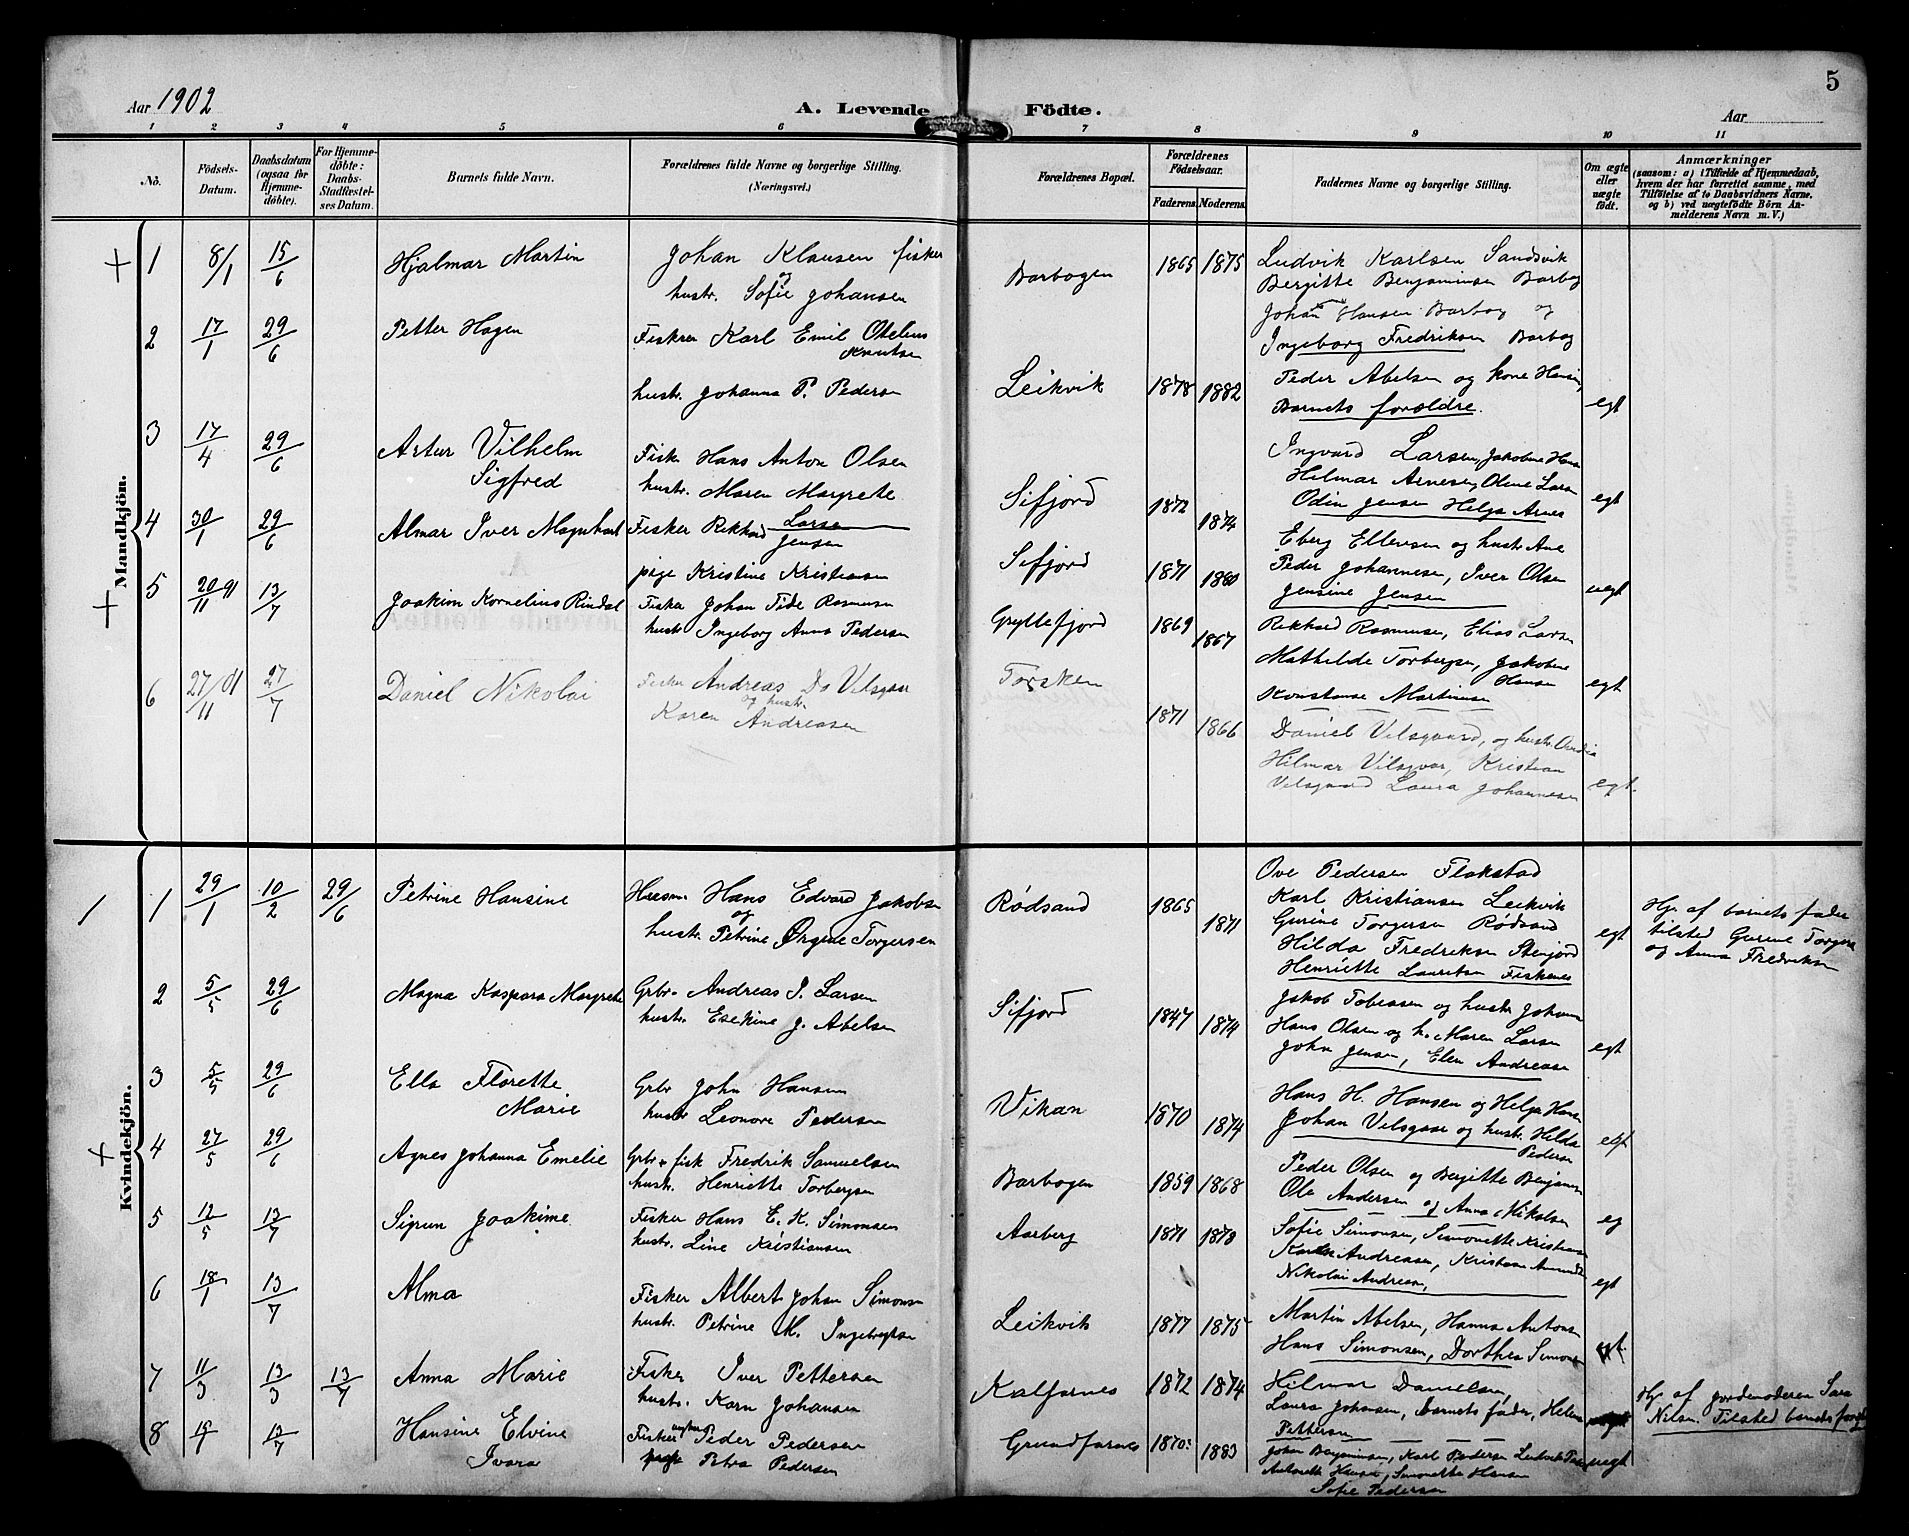 5
Aar 1902
A. Levende Födte.
Aar
1 2 3 4 5 6 7 8 9 10 11
No.
Födsels-Datum.
Daabsdatum (ogsaa for Hjemmedöbte).
For Hjemmedöbte: Daabs-Stadfæstelses Datum.
Barnets fulde Navn.
Forældrenes fulde Navne og borgerlige Stilling. (Næringsvei.)
Forældrenes Bopæl.
Forældrenes Födselsaar.
Faderens. Moderens.
Faddernes Navne og borgerlige Stilling.
Om ægte eller uægte födt.
Anmærkninger
(saasom: a) i Tilfælde af Hjemmedaab, hvem der har forrettet samme, med Tilföielse af to Daabsvidners Navne, og b) ved uægtefödte Börn Anmelderens Navn m. V.)
Mandkjön.
+ 1 8/1 15/6 Hjalmar Martin
Johan Klausen fisker
og
hustr. Sofie Johansen
Barbogen 1865 1875
Ludvik Karlsen Sandsvik
Bergitte Benjaminsen Barbog
Johan Hansen Barbog og
Ingeborg Fredriksen Barbog
2 17/1 29/6 Petter Hagen
Fiskeren Karl Emil Otelius
Knutsen
hustr. Johanna P. Pedersen
Leikvik 1878 1882
Peder Abelsen og kone Hansine,
Barnets forældre.
egt
3 17/4 29/6 Artur Vilhelm
Sigfred
Fisk. Hans Anton Olsen
hustr. Maren Margrete
Larsen
Sifjord 1872 1874
Ingvard Larsen, Jakobine Hans
Hilmar Arnesen, Oline Larsen
Odin Jensen Helga Arnes
egt
4 30/1 29/6 Almar Iver Magnhart
Fisker Rikhard Jensen
pige Kristine Kristiansen
Sifjord 1871 1880
Eberg Ellevsen og hustr. Ane
Peder Johannesen, Iver Olsen
Jensine Jensen
uegt
+ 5 20/11 01 13/7 Joakim Kornelius Rindal
Fisker Johan Tide Rasmusen
hustr. Ingeborg Anna Pedersen
Gryllefjord 1869 1867
Rikhard Rasmusen, Elias Larsen
Mathilde Torbergsen, Jakobine
Hansen
Konstanse Martinusen
egt
6 27/11 01 27/7 Daniel Nikolai
Fisker Andreas Do Vilsgaar
og hustr.
Karen Andreasen
Torsken 1871 1866
Daniel Vilsgaard, og hustr.
Hilmar Vilsgaar, Kristian
Velsgaard Laura Johannesen
egt.
Kvindekjön.
1 29/1 10/2 29/6 Petrine Hansine
Huusm. Hans Edvard Jakobsen
og
hustr. Petrine Ørgine Torgersen
Rødsand 1865 1871
Ove Pedersen Flakstad
Karl Kristiansen Leikvik
Gurine Torgersen Rødsand
Hilda Fredriksen Stenjord
Henriette Lauritsen Fiskenes
egt
Hj. af barnets fader
tilsted Gurine Torgers
og Anna Fredriksen
2 5/5 29/6 Magna Kaspara Margrete
Grbr. Andreas J. Larsen
hustr. Esekine J. Abelsen
Sifjord 1847 1874
Jakob Tobiasen og hustr. Johanna
Hans Olsen og h. Maren Larsen
John Jensen, Elen Andreasen
egt
3 5/5 29/6 Ella Florette
Marie
Grbr John Hansen
hustr Leonore Pedersen
Vikan 1870 1874
Hans H. Hansen og Helga Hansen
Johan Velsgaar og hustr. Hilda
Pedersen
egt
+ 4 27/5 29/6 Agnes Johanna Emelie
Grbr + fisk Fredrik Samuelsen
hustr. Henriette Torbergsen
Barbogen 1859 1868
Peder Olsen og Bergitte Benjamin
Ole Andersen og Anna Mikalsen
eg
5 12/5 13/7 Sigrun Joakime
Fisker Hans E. K. Simonsen
hustr. Line Kristiansen
Aarberg 1871 1878
Sofie Simonsen, Simonette Kristiansen
Andreasen, Kristian
Nikolai Andreasen,
egt
6 18/1 13/7 Alma
Fisker Albert Johan Simonsen
hustr. Petrine M. Ingebregtsen
Leikvik 1877 1875
Martin Abelsen, Hanna Antonsen
Hans Simonsen, Dorthea Simonsen
egt.
7 11/3 13/3 13/7 Anna Marie
Fisker Iver Pettersen
hustr. Karn Johansen
Kalfarnes 1872 1874
Hilmar Danielsen,
Laura Johnsen, Barnets fader, Helena
Pettersen
Hj. af jordemoderen Sara
Nilsen. Tilsted barnets foræld
8 13/7 Hansine Elvine
Ivara
Fisker ungkar Peder Pedersen
pige Petra Pedersen
Grundfarnes 1870 1883
Johan Benjaminsen, Karl Pedersen Ludvik
Antonette Hansen, Simonette Hansen
Sofie Pedersen
uegt